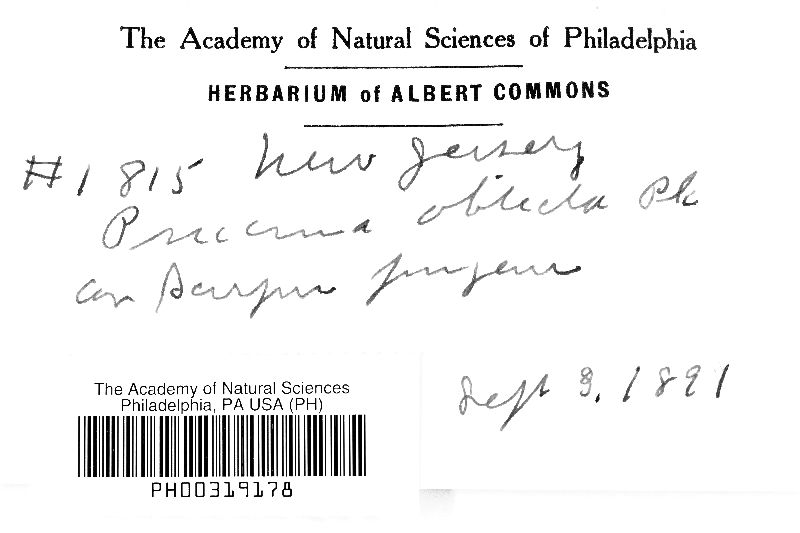 The Academy of Natural Sciences of Philadelphia
HERBARIUM of ALBERT COMMONS
#1815 New Jersey
Puccinia obtecta Pk
on Scirpus pungens
The Academy of Natural Sciences
Philadelphia, PA USA (PH)
PH00319178
Sept 3, 1891